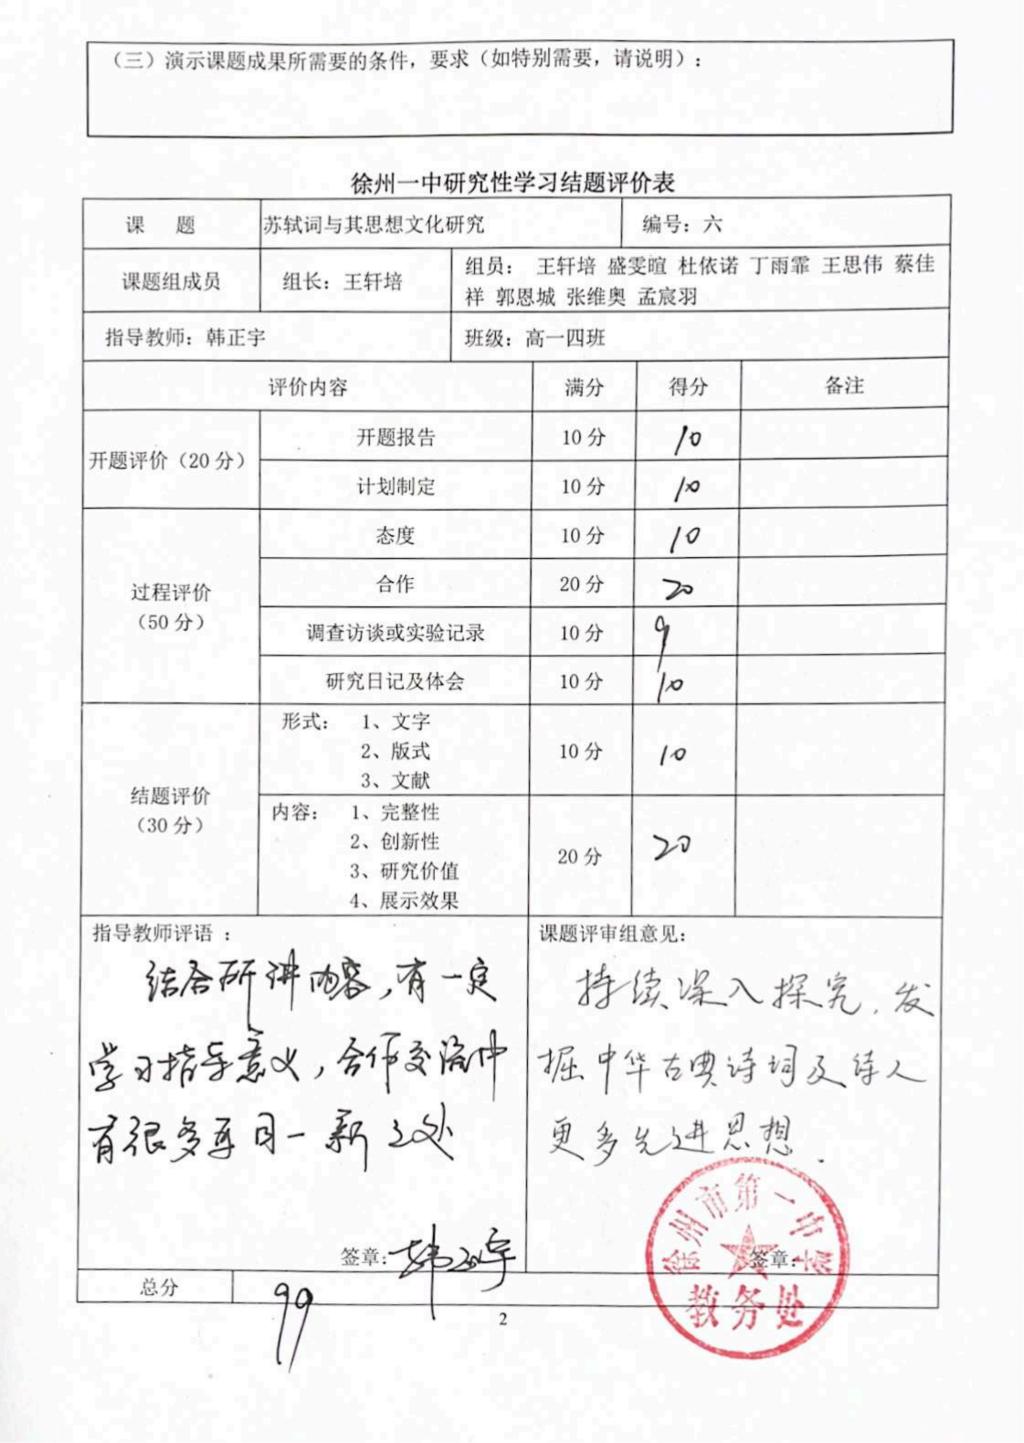 （三）演示课题成果所需要的条件，要求（如特别需要，请说明）：
徐州一中研究性学习结题评价表
课 题 苏轼词与其思想文化研究 编号：六
课题组成员 组长：王轩培 组员： 王轩培 盛雯暄 杜依诺 丁雨霏 王思伟 蔡佳
祥 郭恩城 张维奥 孟宸羽
指导教师：韩正宇 班级：高一四班
评价内容 满分 得分 备注
开题评价（20 分） 开题报告 10 分 10
计划制定 10 分 10
过程评价
（50 分）
态度 10 分 10
合作 20 分 20
调查访谈或实验记录 10 分 9
研究日记及体会 10 分 10
结题评价
（30 分）
形式： 1、文字
2、版式
3、文献
10 分 10
内容： 1、完整性
2、创新性
3、研究价值
4、展示效果
20 分 20
指导教师评语 ：
结合研讲内容，有一定
学习指导意义，合作交流中
有很多耳目一新之处
签章：韩正宇
课题评审组意见：
持续深入探究，发
掘中华古典诗词及诗人
更多先进思想．
签章：
徐州市第一中学
教务处
总分 99
2